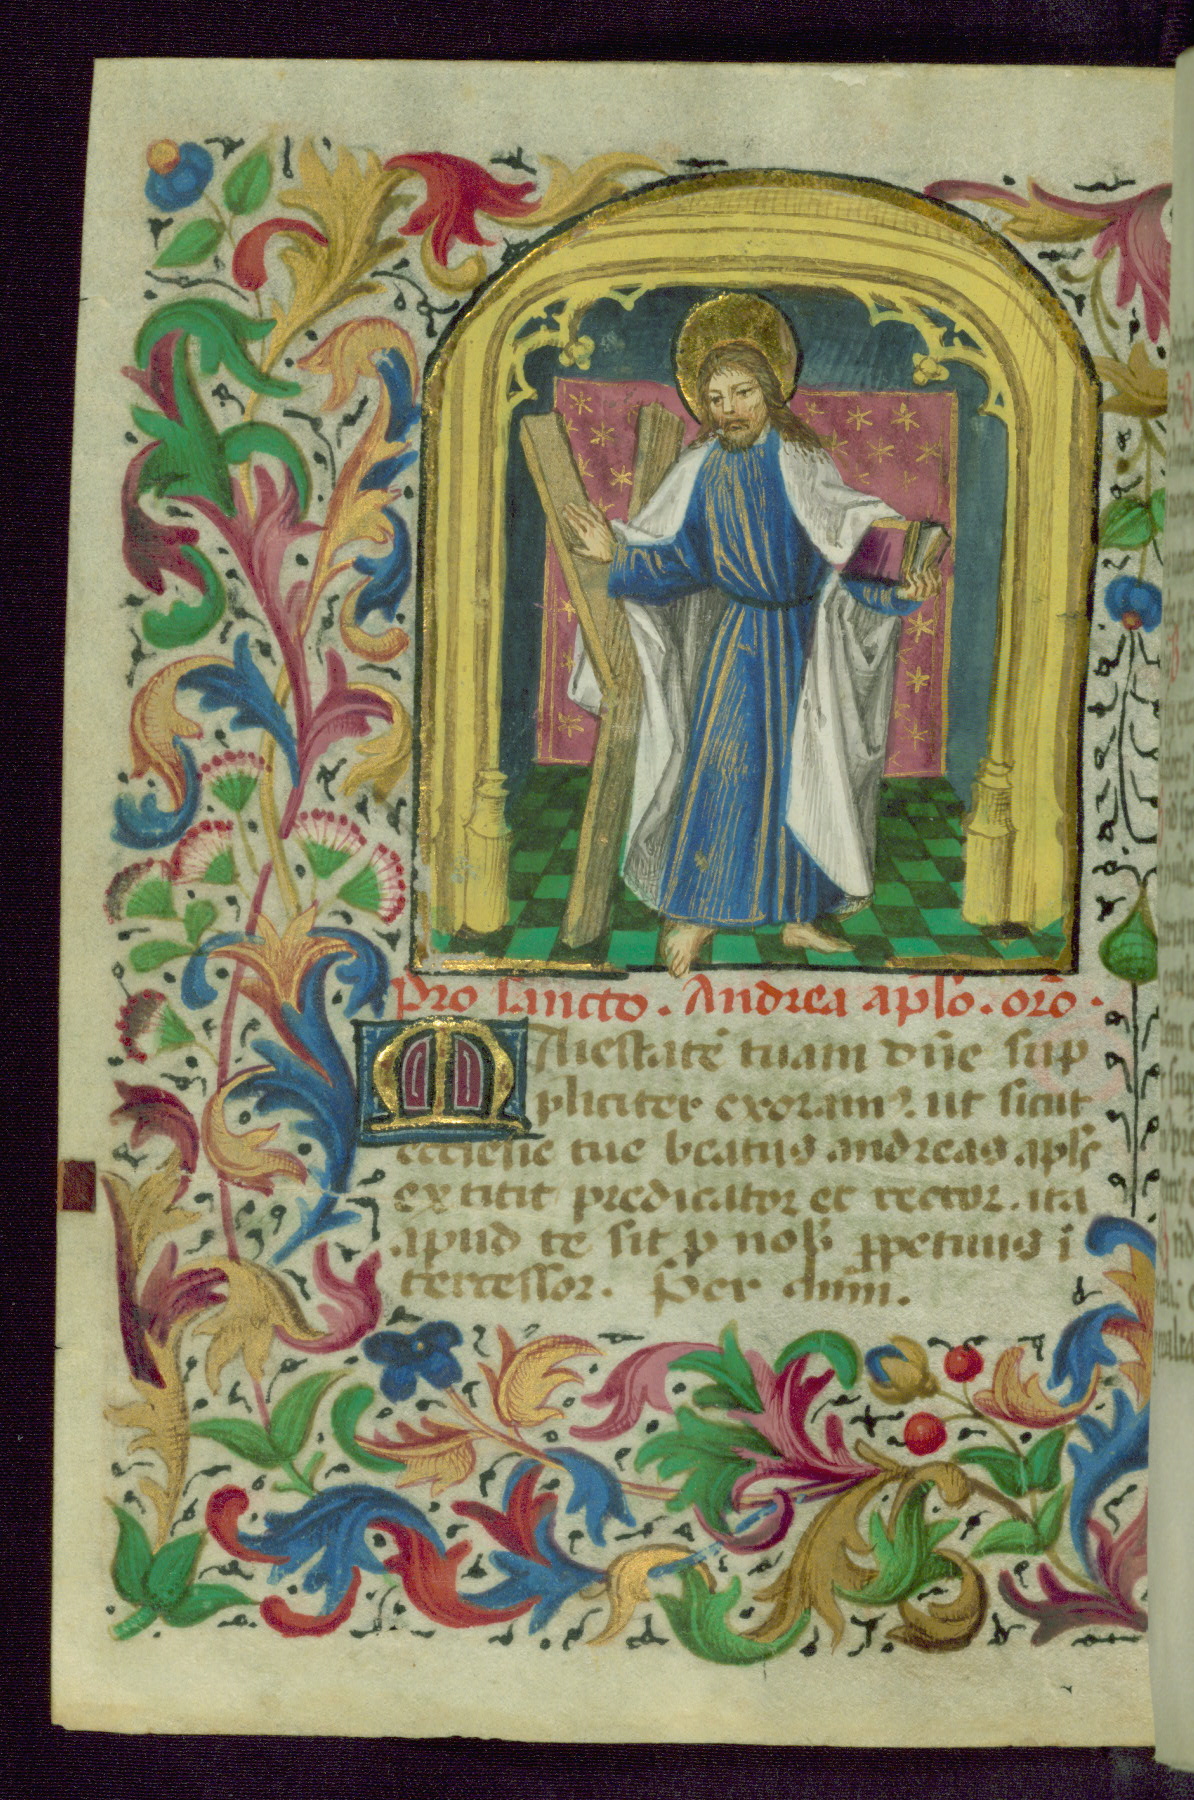 Pro sancto. Andrea apl̅o. or̅o.
Maiestate̅ tuam dn̅e sup
pliciter exoram9. ut sicut
ecclesie tue beatus andreas apl̅s
extitit predicator et rector. ita
apud te sit p nob̅ ppetuus i̅
tercessor. Per dn̅m.